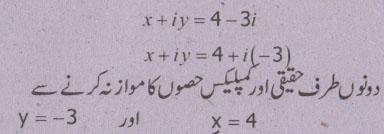 x + iy = 4 − 3i
x + iy = 4 + i(−3)
دونوں طرف حقیقی اور کمپلیکس حصوں کا موازنہ کرنے سے
x = 4 اور y = −3